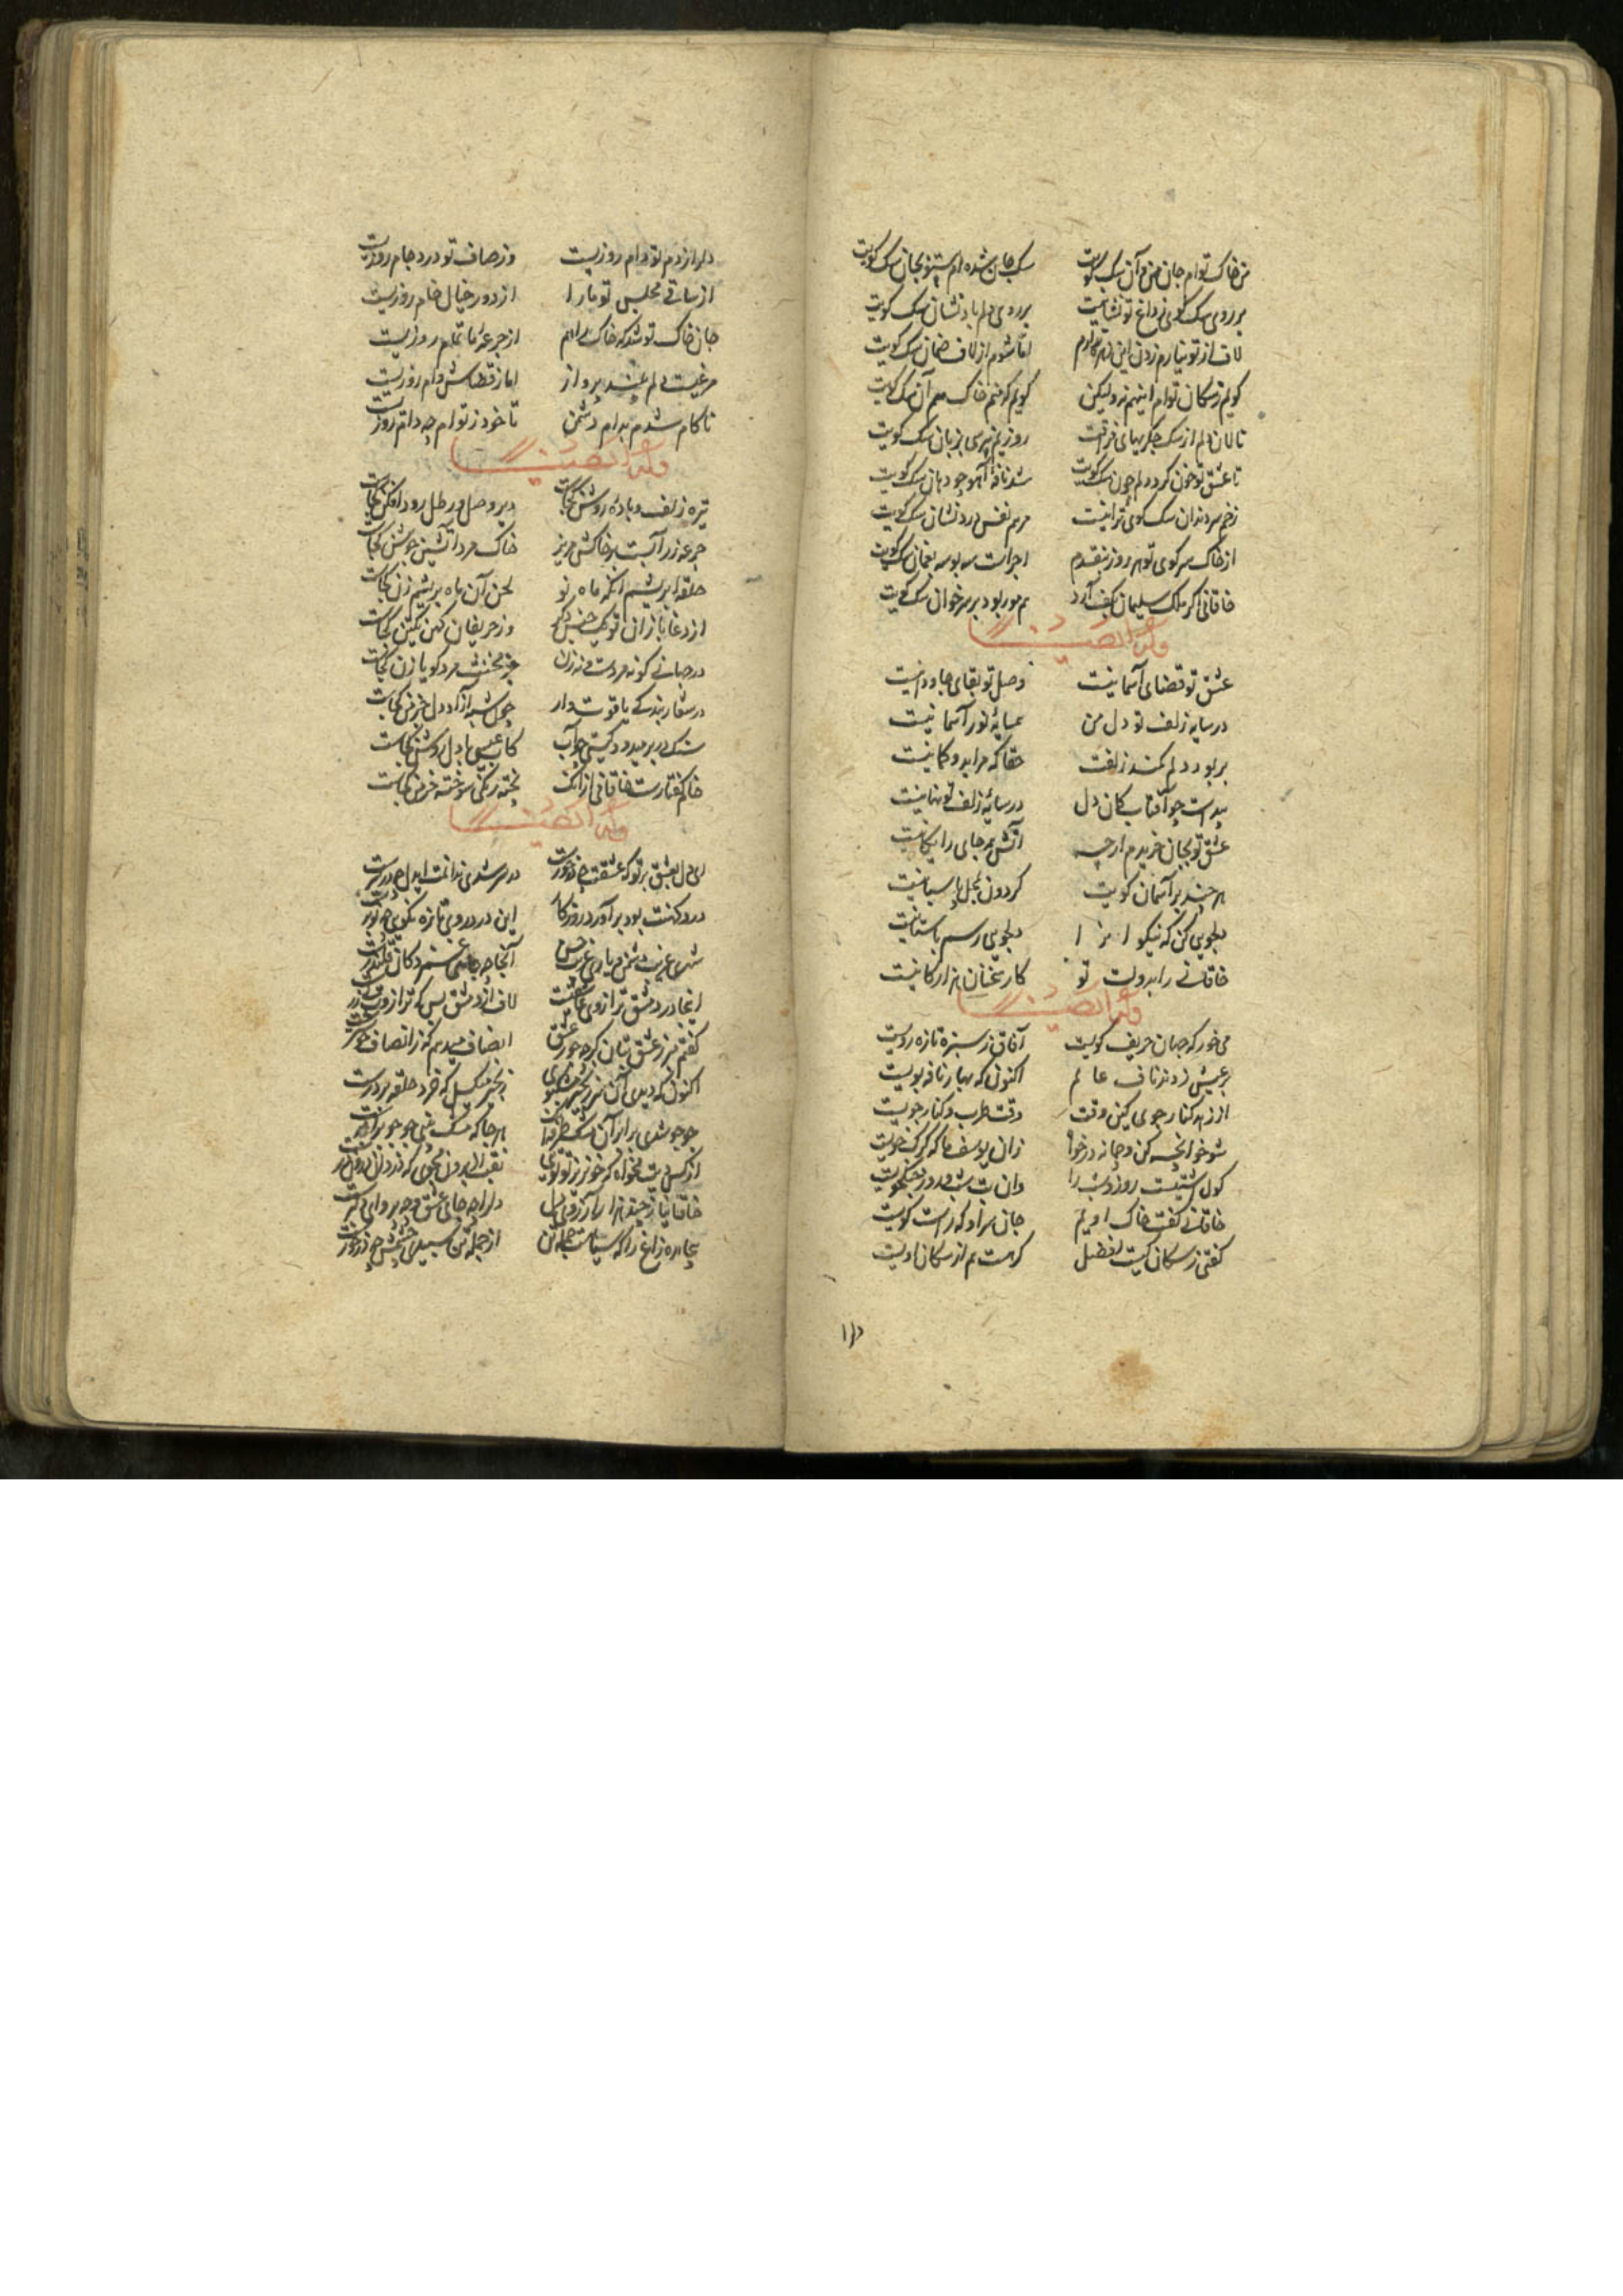 من خاک توام جان من و آن سگ کویت سگ جان شده ام بتو بجان سگ کویت
بر روی سگ کوی ز داغ تو نشانیست بر روی دلم باد نشان سگ کویت
لاف از تو نیارم زدن این اما شوم از لاف ضمان سگ کویت
کویم ز سکان توام اینهم نه ولیکن کویم که منم خاک هم آن سگ کویت
نالان دلم از سگ جگریهای فراقت روزیم نپرسی بزبان سگ کویت
تا عشق تو خون کرد دلم چون سگ کویت شد نافه آهو چو دهان سگ کویت
زخم سر دندان سگ کوی ترانیست مرهم نفس درد نشان سگ کویت
از خاک سر کوی تو هر روز بنقدم اجرات سه بوسه بضمان سگ کویت
خاقانی اگر ملک سلیمان بکف آرد هم مور بود بر سر خوان سگ کویت
وله ایضا
عشق تو قضای آسمانیست وصل تو بقای جاودانیست
در سایه زلف تو دل من همسایه نور آسمانیست
بربود دلم کمند زلفت حقا که مرا بدو کمانیست
پیداست چو آفتاب کان دل در سایه زلف تو نهانیست
عشق تو بجان خریدم ار چه آتش همه جای رایکانیست
هر چند بر آسمان کویت کردون بمحل پاسبانیست
دلجویی کن که نیکوانرا دلجویی رسم باستانیست
خاقانی را بدولت تو کار سخنان هزار کانیست
وله ایضا
می خور که جهان حریف کویست آفاق ز سبزه تازه رویست
بر عیش زدند ناف عالم اکنون که بهار نافه بویست
از زهد کنار جوی کین وقت وقت طرب و کنار جویست
شو خوانچه کن و چمانه در خواه زان یوسف ما که کرک خویست
کول شب روز و شب را وان بت شب و روز جنکجویست
خاقانی کفت خاک اویم جان و سر او که راست کویست
کفتی ز سکان کیست افضل کر هست هم از سکان اویست
دلرا
دلرا ز دم تو دام روزیست وز صاف تو درد جام روزیست
از ساقی مجلس تو ما را از دور خیال خام روزیست
جان خاک تو شد که خاک را هم از جرعه ناتمام روزیست
مرغیست دلم بلند پرواز اما ز قضاش دام روزیست
ناکام شدم بدام دشمن تا خود ز توام چه دام روزیست
وله ایضا
تیره زلف و باده روشن کجاست دیر وصل و رطل رود افکن کجاست
جرعه زر آبست بر خاکش مریز خاک مرد آتشین جوشن کجاست
حلقه ابریشم آنک ماه نو لحن آن ماه بریشم زن کجاست
از دغا بازان نو یک جنس کو وز حریفان کهن یکتن کجاست
در جهانی کو نه مردست و نه زن جز مخنث مرد کو یا زن کجاست
در سفار بندکی یاقوت وار چون شبه آزاد دل خرمن کجاست
سنک بر در میدود کیتی جو آب کاب عیسی با دل روشن کجاست
خام کفتارست خاقانی ازانک پخته رنکی سوخته خرمن کجاست
وله ایضا
ای دل بعشق بر تو که عشقت چه درخورست در سر شدی ندانمت ایدل چه در سرست
درد کهنت بود برآورد روزکار این درد روی تازه نکویی چه نوبرست
شهری غریب دشمن و یاری غریب حسن آنجا چه جای غمزده کان قلندرست
اینجا در دمشق ترازوی عاشقیست لاف از دمشق بس که ترازوت بی زرست
کفتم مرو ز عشق بتان کرد جور عشق انصاف میدهم که ز انصاف خوشترست
اکنون که دیدی آن سر زنجیر مشکبوی زنجیر میکسل که خرد حلقه بر درست
جو جو شدی برابر آن مشک طره شان هر جا که مشک بینی جو جو برابرست
از کس دیت مخواه که خونریز تو توی نقب از برون مجوی که دزد اندرون درست
خاقانیا ز چندین هزار آرزوی دل دلرا چه جای عشق و چه پروای دلبرست
بیچاره زاغ را که سیاهست جمله تن از جمله تن سپیدی چشمش چه درخورست